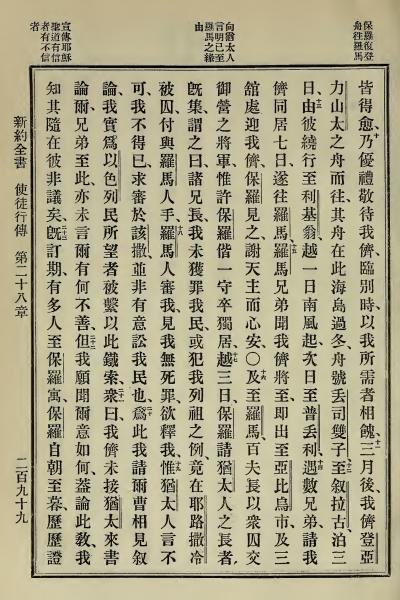 保羅復登
舟往羅馬
向猶太人
言明已至
羅馬之緣
由
宣傳耶穌
聖道有信
者有不信
者
皆得愈、乃優禮敬待我儕、臨別時、以我所需者相餽、十一三月後、我儕登亞
力山太之舟而往、其舟在此海島過冬、舟號丟司雙子、十二至叙拉古、泊三
日、十三由彼繞行至利基翁、越一日南風起、次日至普丟利、十四遇數兄弟、請我
儕同居七日、遂往羅馬、十五羅馬兄弟聞我儕將至、即出至亞比烏市及三
舘處迎我儕、保羅見之、謝天主而心安、○十六及至羅馬、百夫長以衆囚交
御營之將軍、惟許保羅偕一守卒獨居、十七越三日、保羅請猶太人之長者、
旣集、謂之曰、諸兄、我未獲罪我民、或犯我列祖之例、竟在耶路撒冷
被囚、付與羅馬人手、十八羅馬人審我、見我無死罪、欲釋我、十九惟猶太人言不
可、我不得已、求審於該撒、並非有意訟我民也、二十爲此我請爾曹相見叙
論、我實爲以色列民所望者、被繫以此鐵索、二十一衆曰、我儕未接猶太來書
論爾、兄弟至此、亦未言爾有何不善、二十二但我願聞爾意如何、蓋論此敎、我
知其隨在彼非議矣、二十三旣訂期、有多人至保羅寓、保羅自朝至暮、歷歷證
新約全書 使徒行傳 第二十八章 二百九十九